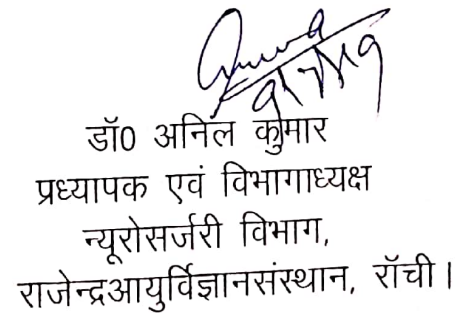 डॉ0 अनिल कुमार
प्रध्यापक एवं विभागाध्यक्ष
न्यूरोसर्जरी विभाग,
राजेन्द्रआयुर्विज्ञानसंस्थान, राॅची।